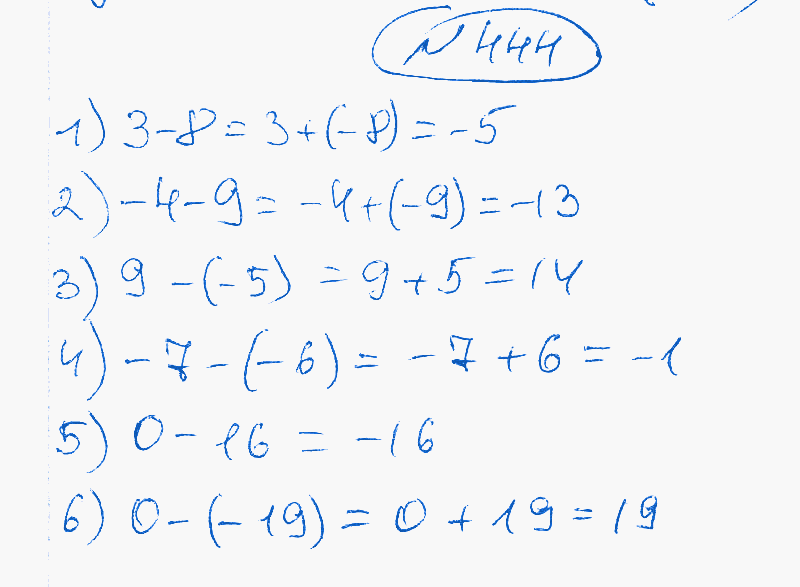 N 444
1) 3 - 8 = 3 + (-8) = -5
2) -4 - 9 = -4 + (-9) = -13
3) 9 - (-5) = 9 + 5 = 14
4) -7 - (-6) = -7 + 6 = -1
5) 0 - 16 = -16
6) 0 - (-19) = 0 + 19 = 19